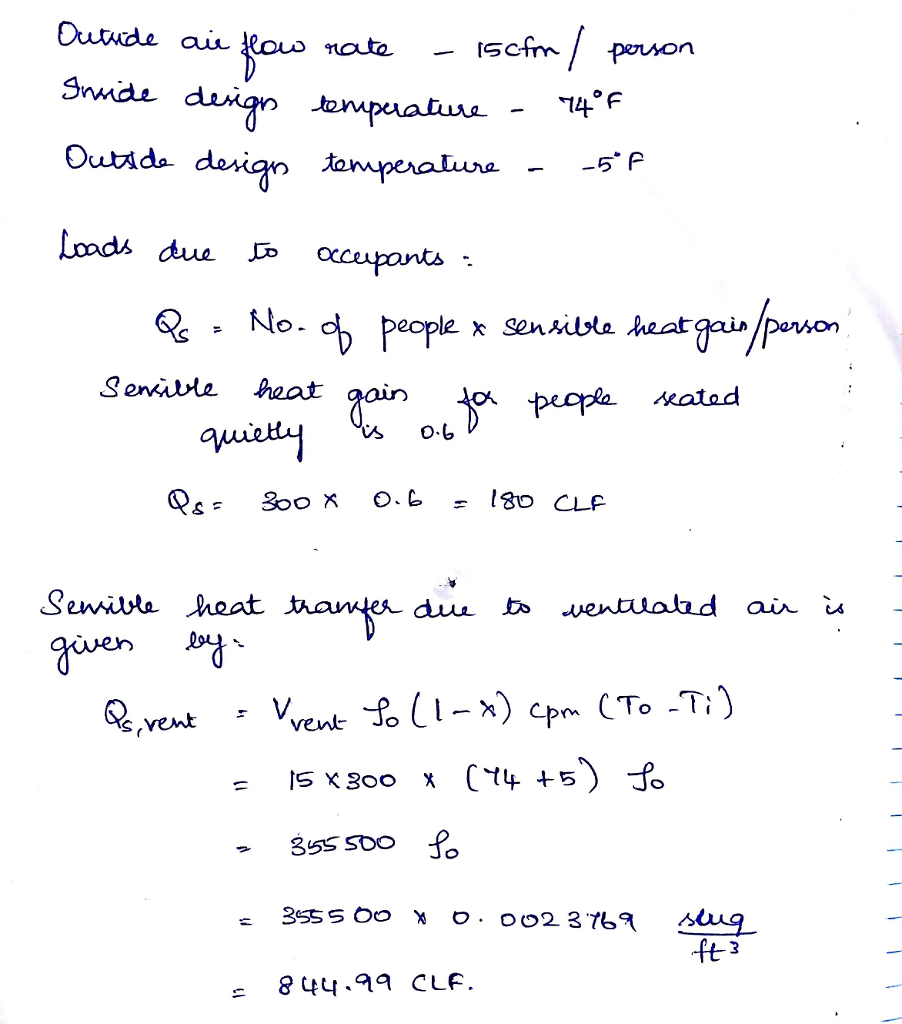 Outside air flow rate - 15cfm / person
Inside design temperature - 74°F
Outside design temperature - -5°F
Loads due to occupants :
Qs = No. of people x sensible heat gain/person
Sensible heat gain for people seated
quietly is 0.6
Qs = 300 x 0.6 = 180 CLF
Sensible heat transfer due to ventilated air is
given by :
Qs,vent = Vvent ρo (1-x) cpm (To - Ti)
= 15 x 300 x (74 + 5) ρo
= 355 500 ρo
= 355500 x 0.0023769 slug/ft3
= 844.99 CLF.